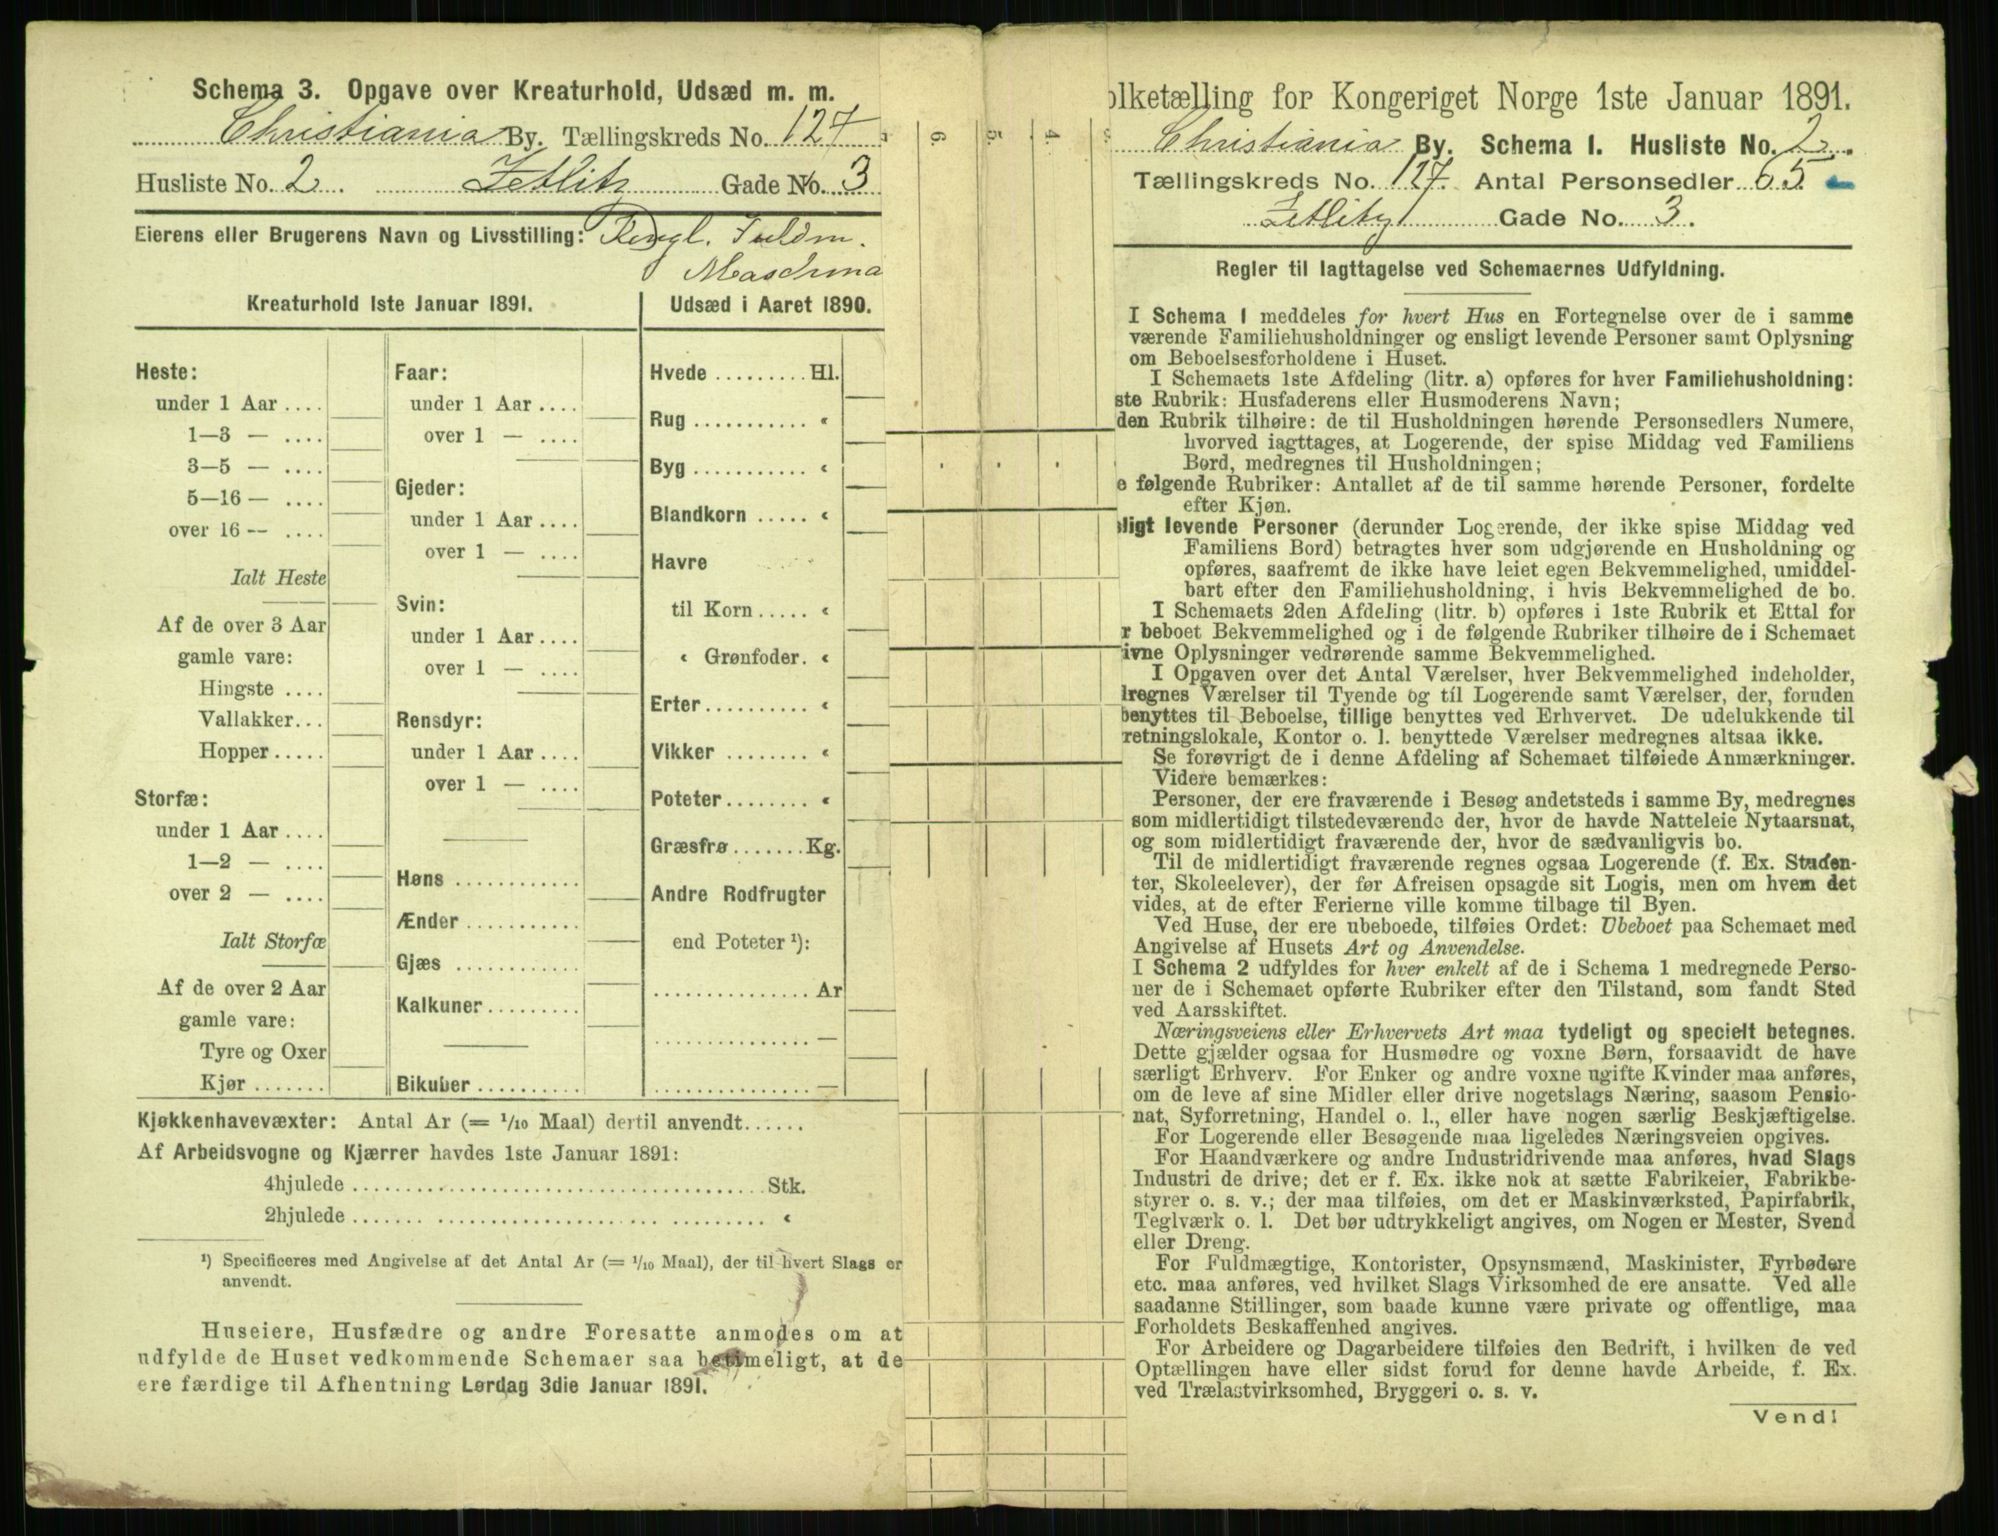 Schema 3. Opgave over Kreaturhold, Udsæd m. m.
Christiania By. Tællingskreds No. 127
Husliste No. 2 Zetlitz Gade No. 3
Eierens eller Brugerens Navn og Livsstilling: Fuldm.
Kreaturhold 1ste Januar 1891.
Heste:
under 1 Aar ....
1—3 — ....
3—5 — ....
5—16 — ....
over 16 — ....
Ialt Heste
Af de over 3 Aar
gamle vare:
Hingste ....
Vallakker...
Hopper.....
Storfæ:
under 1 Aar ....
1—2 — ....
over 2 — ....
Ialt Storfæ
Af de over 2 Aar
gamle vare:
Tyre og Oxer
Kjør .......
Faar:
under 1 Aar ....
over 1 — ....
Gjeder:
under 1 Aar ....
over 1 — ....
Svin:
under 1 Aar ....
over 1 — ....
Rensdyr:
under 1 Aar ....
over 1 — ....
Høns ............
Ænder ...........
Gjæs ............
Kalkuner.........
Bikuber ..........
Udsæd i Aaret 1890.
Hvede ......... Hl.
Rug ........... «
Byg ........... «
Blandkorn ..... «
Havre
til Korn ..... «
« Grønfoder. «
Erter.......... «
Vikker ........ «
Poteter........ «
Græsfrø....... Kg.
Andre Rodfrugter
end Poteter ¹):
............... Ar
............... —
............... —
Kjøkkenhavevæxter: Antal Ar (= 1/10 Maal) dertil anvendt......
Af Arbeidsvogne og Kjærrer havdes 1ste Januar 1891:
4hjulede ........................................ Stk.
2hjulede ........................................ «
¹) Specificeres med Angivelse af det Antal Ar (= 1/10 Maal), der til hvert Slags er
anvendt.
Huseiere, Husfædre og andre Foresatte anmodes om at
udfylde de Huset vedkommende Schemaer saa betimeligt, at de
ere færdige til Afhentning Lørdag 3die Januar 1891.
6.
5.
4.
olketælling for Kongeriget Norge 1ste Januar 1891.
Christiania By. Schema 1. Husliste No. 2.
Tællingskreds No. 127. Antal Personsedler 65.
Gade No. 3.
Regler til Iagttagelse ved Schemaernes Udfyldning.
I Schema 1 meddeles for hvert Hus en Fortegnelse over de i samme
værende Familiehusholdninger og ensligt levende Personer samt Oplysning
om Beboelsesforholdene i Huset.
I Schemaets 1ste Afdeling (litr. a) opføres for hver Familiehusholdning:
ste Rubrik: Husfaderens eller Husmoderens Navn;
den Rubrik tilhøire: de til Husholdningen hørende Personsedlers Numere,
hvorved iagttages, at Logerende, der spise Middag ved Familiens
Bord, medregnes til Husholdningen;
e følgende Rubriker: Antallet af de til samme hørende Personer, fordelte
efter Kjøn.
ligt levende Personer (derunder Logerende, der ikke spise Middag ved
Familiens Bord) betragtes hver som udgjørende en Husholdning og
opføres, saafremt de ikke have leiet egen Bekvemmelighed, umiddel-
bart efter den Familiehusholdning, i hvis Bekvemmelighed de bo.
I Schemaets 2den Afdeling (litr. b) opføres i 1ste Rubrik et Ettal for
r beboet Bekvemmelighed og i de følgende Rubriker tilhøire de i Schemaet
ivne Oplysninger vedrørende samme Bekvemmelighed.
I Opgaven over det Antal Værelser, hver Bekvemmelighed indeholder,
lregnes Værelser til Tyende og til Logerende samt Værelser, der, foruden
benyttes til Beboelse, tillige benyttes ved Erhvervet. De udelukkende til
retningslokale, Kontor o. l. benyttede Værelser medregnes altsaa ikke.
Se forøvrigt de i denne Afdeling af Schemaet tilføiede Anmærkninger.
Videre bemærkes:
Personer, der ere fraværende i Besøg andetsteds i samme By, medregnes
som midlertidigt tilstedeværende der, hvor de havde Natteleie Nytaarsnat,
og som midlertidigt fraværende der, hvor de sædvanligvis bo.
Til de midlertidigt fraværende regnes ogsaa Logerende (f. Ex. Studen-
ter, Skoleelever), der før Afreisen opsagde sit Logis, men om hvem det
vides, at de efter Ferierne ville komme tilbage til Byen.
Ved Huse, der ere ubeboede, tilføies Ordet: Ubeboet paa Schemaet med
Angivelse af Husets Art og Anvendelse.
I Schema 2 udfyldes for hver enkelt af de i Schema 1 medregnede Perso-
ner de i Schemaet opførte Rubriker efter den Tilstand, som fandt Sted
ved Aarsskiftet.
Næringsveiens eller Erhvervets Art maa tydeligt og specielt betegnes.
Dette gjælder ogsaa for Husmødre og voxne Børn, forsaavidt de have
særligt Erhverv. For Enker og andre voxne ugifte Kvinder maa anføres,
om de leve af sine Midler eller drive nogetslags Næring, saasom Pensio-
nat, Syforretning, Handel o. l., eller have nogen særlig Beskjæftigelse.
For Logerende eller Besøgende maa ligeledes Næringsveien opgives.
For Haandværkere og andre Industridrivende maa anføres, hvad Slags
Industri de drive; det er f. Ex. ikke nok at sætte Fabrikeier, Fabrikbe-
styrer o. s. v.; der maa tilføies, om det er Maskinværksted, Papirfabrik,
Teglværk o. l. Det bør udtrykkeligt angives, om Nogen er Mester, Svend
eller Dreng.
For Fuldmægtige, Kontorister, Opsynsmænd, Maskinister, Fyrbødere
etc. maa anføres, ved hvilket Slags Virksomhed de ere ansatte. Ved alle
saadanne Stillinger, som baade kunne være private og offentlige, maa
Forholdets Beskaffenhed angives.
For Arbeidere og Dagarbeidere tilføies den Bedrift, i hvilken de ved
Optællingen have eller sidst forud for denne havde Arbeide, f. Ex.
ved Trælastvirksomhed, Bryggeri o. s. v.
Vend!